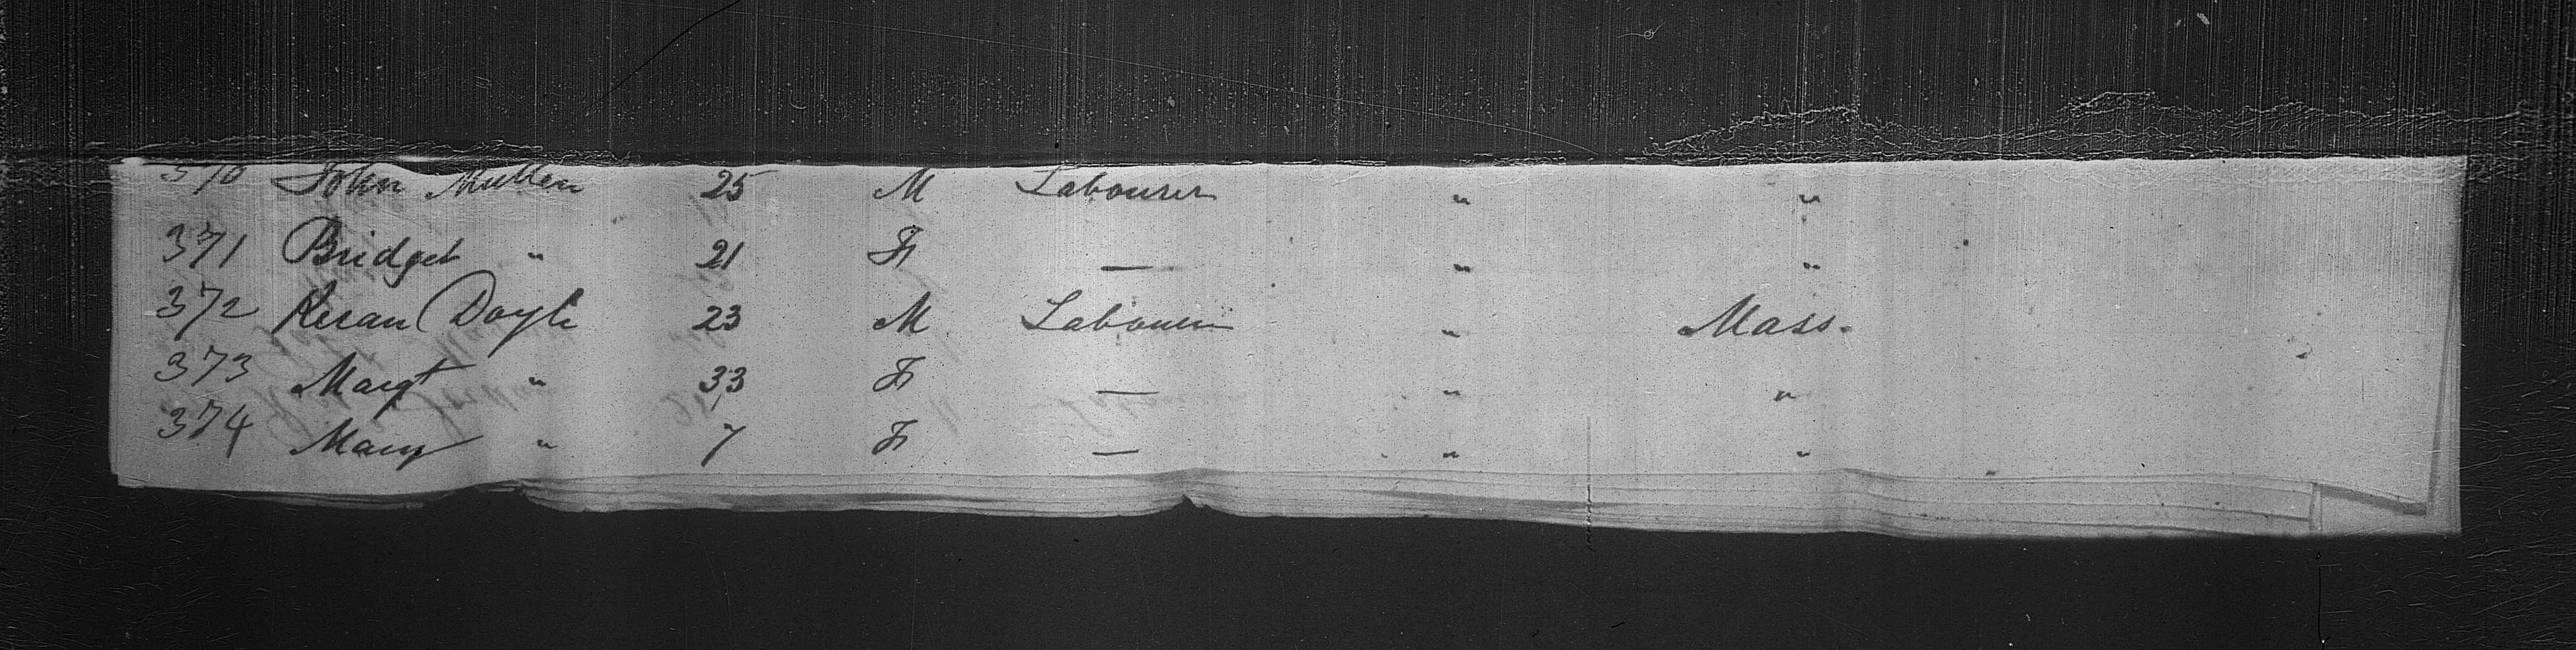 370 John Mullen 25 M Labourer " "
371 Bridget " 21 F — " "
372 Keran Doyle 23 M Labourer " Mass.
373 Margt " 33 F — " "
374 Mary " 7 F — " "